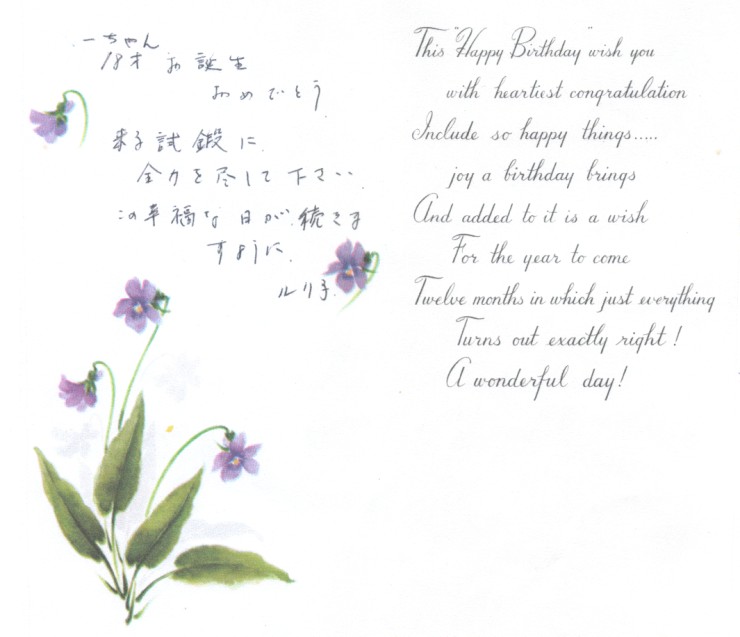 一ちゃん
18才 お誕生
おめでとう
試験に
全力を尽して下さい
この幸福な日が続きま
すように.
ルリ子.
This "Happy Birthday" wish you
with heartiest congratulation
Include so happy things.....
joy a birthday brings
And added to it is a wish
For the year to come
Twelve months in which just everything
Turns out exactly right!
A wonderful day!